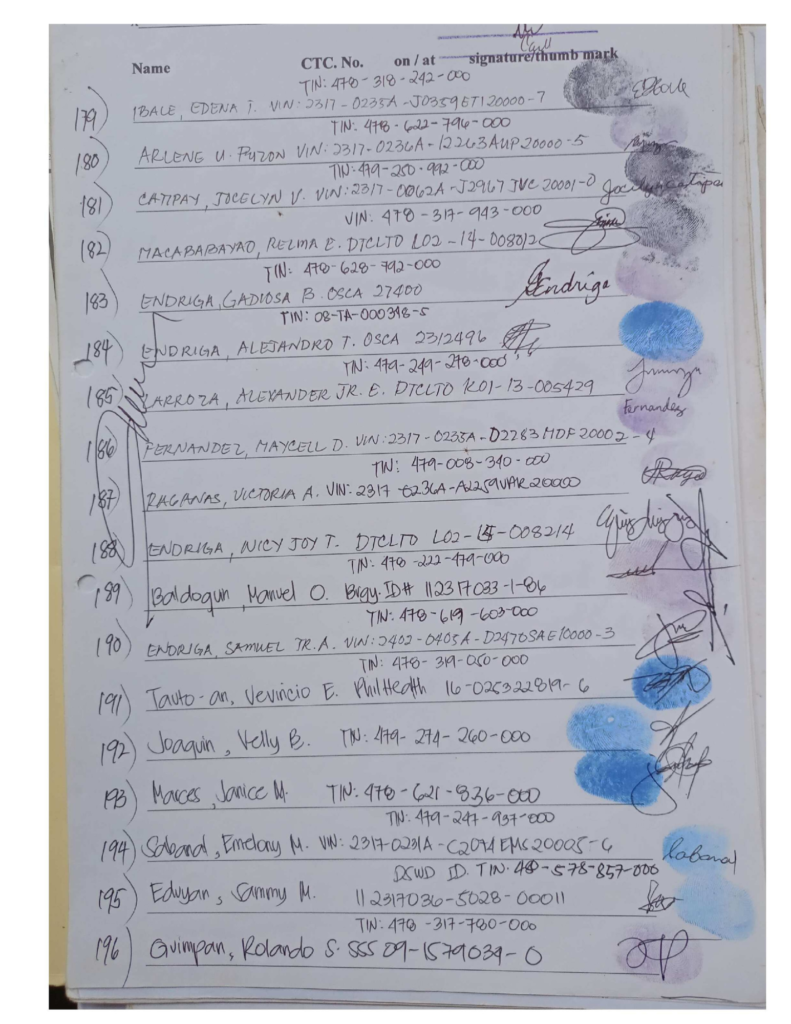 Name CTC. No. on / at signature/thumb mark
TIN: 478-318-242-000
179) IBALE, EDENA I. VIN: 2317-0235A-J0359ETI20000-7
TIN: 478-622-796-000
180) ARLENE U. PUZON VIN: 2317-0236A-I2263AUP20000-5
TIN: 479-250-992-000
181) CATIPAY, JOCELYN V. VIN: 2317-0062A-J2967JVC20001-0
VIN: 478-317-943-000
182) MACABABAYAO, RELMA E. DTCLTO L02-14-008012
TIN: 478-628-792-000
183) ENDRIGA, GADIOSA B. OSCA 27400 Endriga
TIN: 08-TA-000398-5
184) ENDRIGA, ALEJANDRO T. OSCA 2312496
TIN: 479-249-278-000
185) LARROZA, ALEXANDER JR. E. DTCLTO K01-13-005429
Fernandez
186) FERNANDEZ, MAYCELL D. VIN: 2317-0235A-D2283MDF20002-4
TIN: 479-008-340-000
187) PAGANAS, VICTORIA A. VIN: 2317-0236A-A1259VAR20000
188) ENDRIGA, NICY JOY T. DTCLTO L02-15-008214
TIN: 478-222-479-000
189) Baldoqun, Manuel O. Brgy. ID# 112317033-1-86
TIN: 478-619-603-000
190) ENDRIGA, SAMUEL JR. A. VIN: 2402-0405A-D2470SAE10000-3
TIN: 478-319-050-000
191) Tauto-an, Vevincio E. PhilHealth 16-025322819-6
192) Joaquin, Velly B. TIN: 479-274-260-000
193) Marces, Janice M. TIN: 478-621-836-000
TIN: 479-247-937-000
194) Sabanal, Emelony M. VIN: 2317-0231A-C2074EMS20005-6 Sabanal
DSWD ID. TIN: 480-578-857-000
195) Eduyan, Sammy M. 112317036-5028-00011
TIN: 478-317-780-000
196) Guimpan, Rolando S. SSS 09-1579039-0